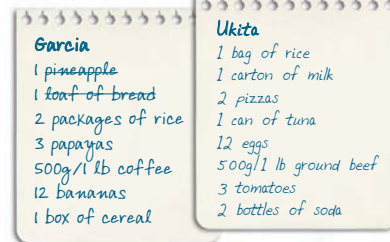 Garcia
1 pineapple
1 loaf of bread
2 packages of rice
3 papayas
500g/1 lb coffee
12 bananas
1 box of cereal
Ukita
1 bag of rice
1 carton of milk
2 pizzas
1 can of tuna
12 eggs
500g/1 lb ground beef
3 tomatoes
2 bottles of soda